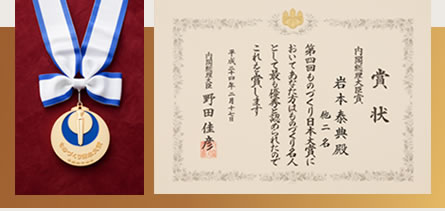 賞状
内閣総理大臣賞
岩本泰典殿
他二名
第四回ものづくり日本大賞に
おいてあなた方はものづくり名人
として最も優秀と認められたので
これを賞します
平成二十四年二月十七日
内閣総理大臣 野田佳彦
ものづくり日本大賞